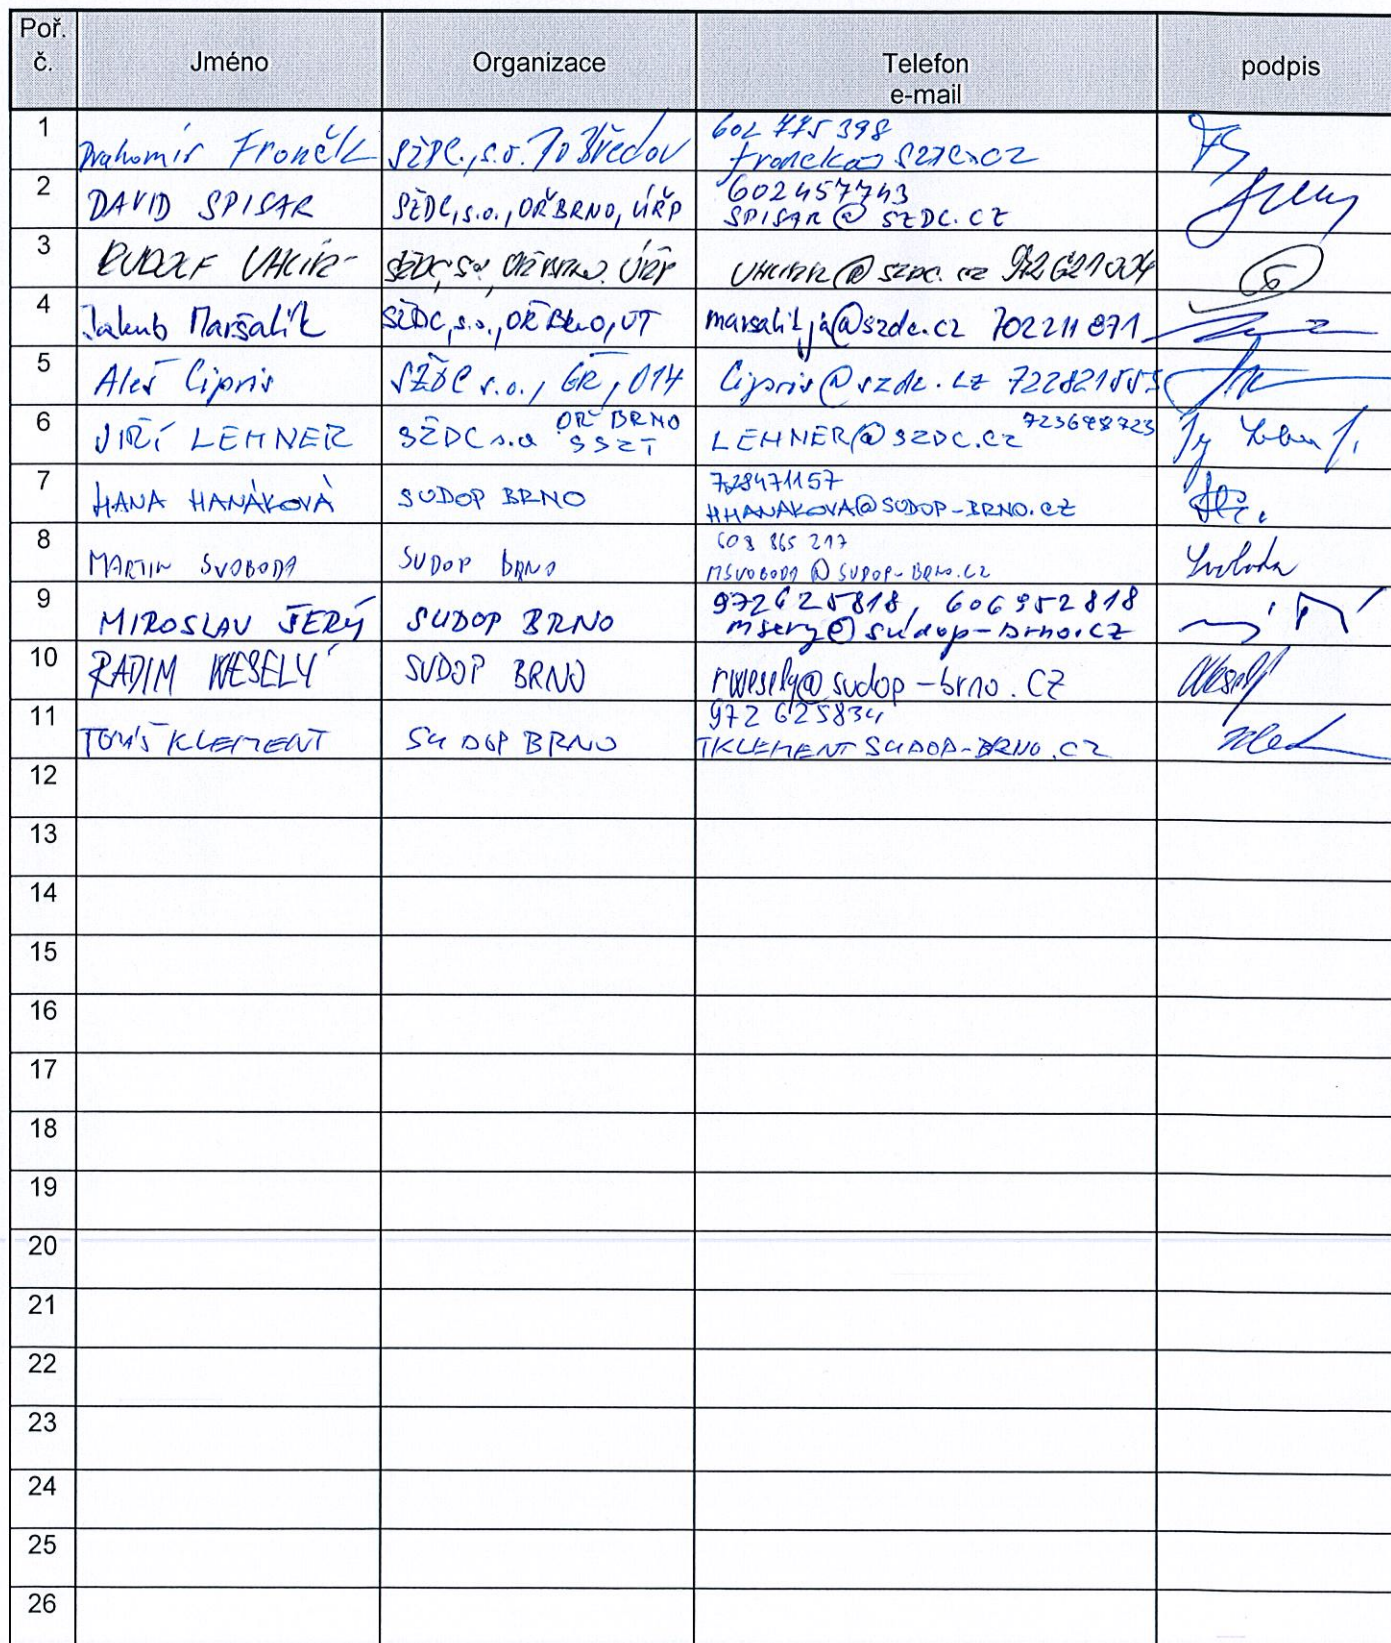 Poř. č. Jméno Organizace Telefon e-mail podpis
1 Drahomír Fronček SŽDC, s.o. PO Břeclav 602 775 398
froncek@szdc.cz
2 DAVID SPISAR SŽDC, s.o., OŘ BRNO, ÚŘP 602457743
SPISAR@SZDC.CZ
3 RUDOLF SŽDC, s.o., OŘ BRNO, ÚŘP @szdc.cz 972621004
4 Jakub Maršalík SŽDC, s.o., OŘ BRNO, ÚT marsalikja@szdc.cz 702211871
5 Aleš Cipris SŽDC s.o., GŘ, O14 Cipris@szdc.cz 722821555
6 JIŘÍ LEHNER SŽDC s.o. OŘ BRNO SSZT LEHNER@SZDC.CZ
7 HANA HANÁKOVÁ SUDOP BRNO 728471157
HHANAKOVA@SUDOP-BRNO.CZ
8 MARTIN SVOBODA SUDOP BRNO 608 865 217
MSVOBODA@SUDOP-BRNO.CZ Svoboda
9 MIROSLAV ŠERÝ SUDOP BRNO 972625818, 606952818
msery@sudop-brno.cz
10 RADIM WESELÝ SUDOP BRNO rwesely@sudop-brno.cz Weselý
11 TOMÁŠ KLEMENT SUDOP BRNO 972 625834
TKLEMENT SUDOP-BRNO.CZ
12
13
14
15
16
17
18
19
20
21
22
23
24
25
26